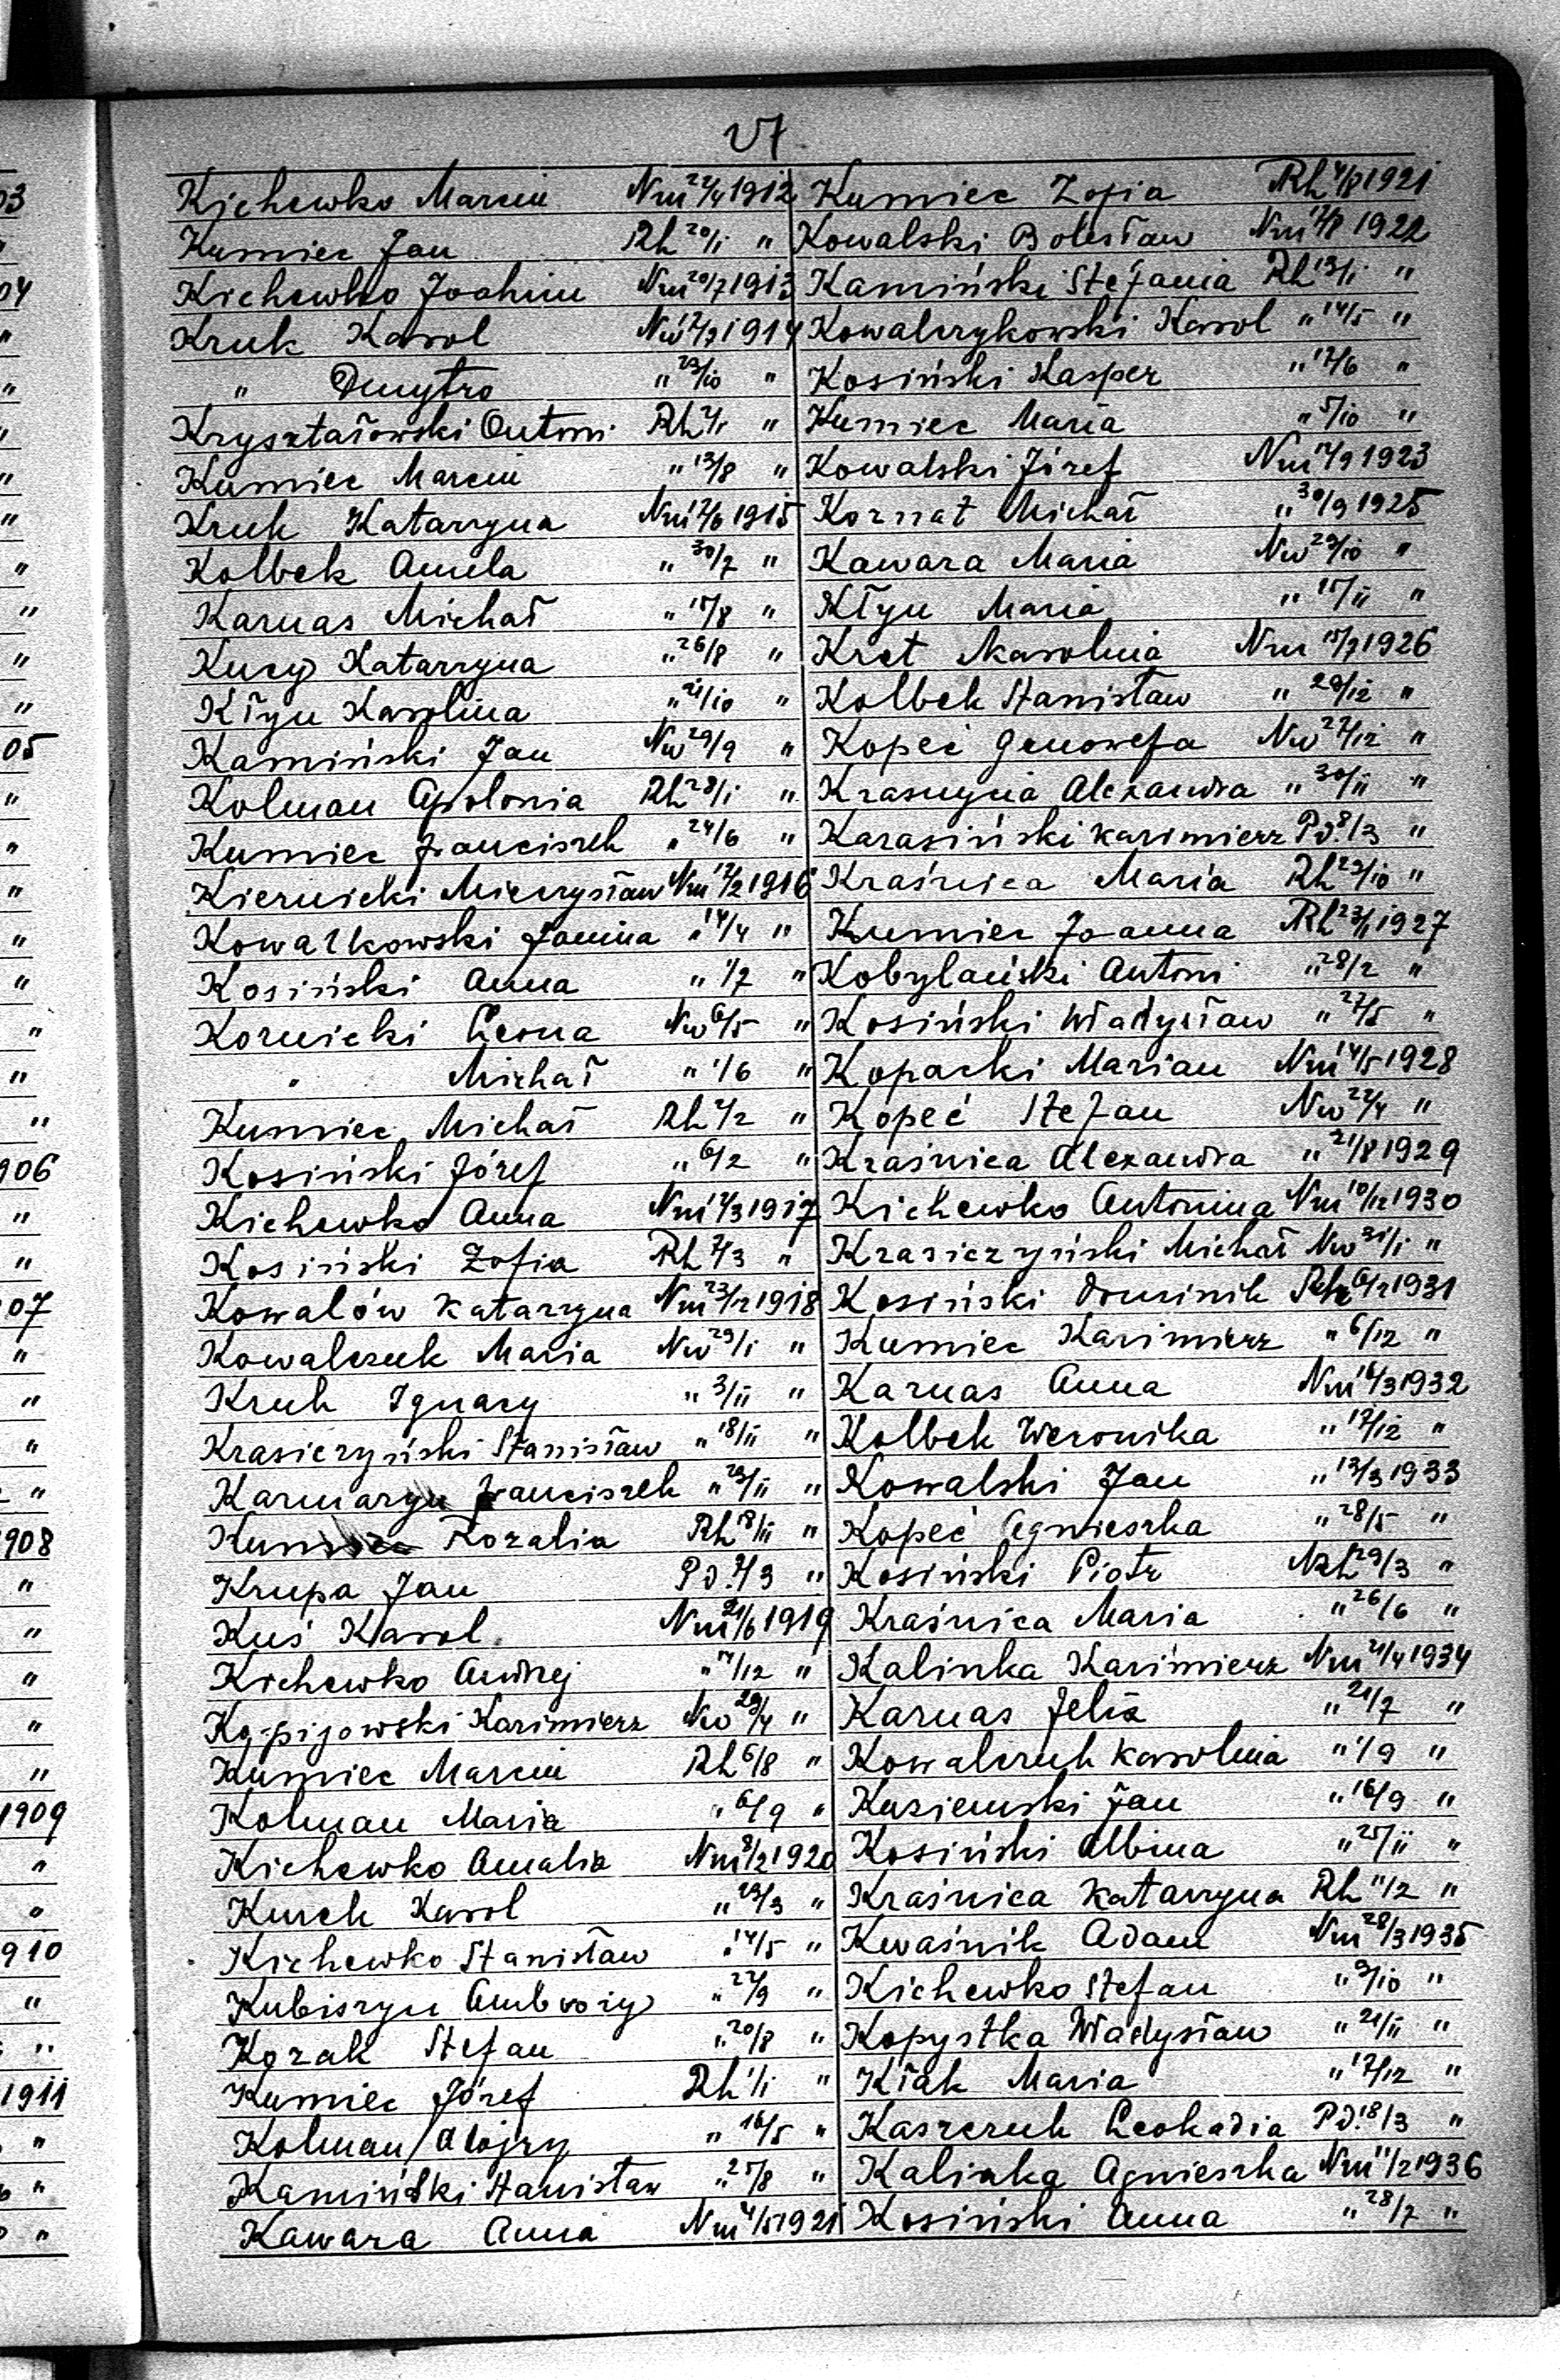 27
Kichewko Marcin Nm 22/4 1912
Kumiec Jan Rh 20/1 "
Kichewko Joahim Nm 20/7 1913
Kruk Karol Nw 12/7 1914
" Dmytro " 23/10 "
Kryształowski Antoni Rh "
Kumiec Marcin " 13/8 "
Kruk Katarzyna Nm 1915
Kolbek Aniela " 30/7 "
Karnas Michał " 15/8 "
Kucy Katarzyna " 26/8 "
Kłyn Karolina " 21/10 "
Kamiński Jan Nw 29/9 "
Kolman Apolonia Rh 28/1 "
Kumiec Franciszek " 24/6 "
Kiernicki Mieczysław Nm 1916
Kowalkowski Janina " 14/4 "
Kosiński Anna " 1/7 "
Kornicki Leona Nw 6/5 "
" Michał " 1/6 "
Kumiec Michał Rh 2/2 "
Kosiński Józef " 6/2 "
Kichewko Anna Nm 1917
Kosiński Zofia Rh 7/3 "
Kowalów Katarzyna Nm 1918
Kowalczuk Maria Nw 29/1 "
Kruk Ignacy " 3/11 "
Krasiczyński Stanisław " 18/11 "
Karmazyn Franciszek " 23/11 "
Kumiec Rozalia Rh "
Krupa Jan Pd. "
Kuś Karol Nm 21/6 1919
Kichewko Andrzej "
Kępijowski Kazimierz Nw 29/4 "
Kumiec Marcin Rh 6/8 "
Kolman Maria " 6/9 "
Kichewko Amalia Nm 8/2 1920
Kurek Karol " 23/3 "
Kichewko Stanisław " 14/5 "
Kubiszyn Ambroży "
Kozak Stefan " 20/8 "
Kumiec Józef Rh 1/1 "
Kolman Alojzy " 16/5 "
Kamiński Stanisław " 25/8 "
Kawara Anna Nm 4/5 1921
Kumiec Zofia Rh 4/8 1921
Kowalski Bolesław Nm 1922
Kamiński Stefania Rh 13/1 "
Kowalczykowski Karol " 14/5 "
Kosiński Kasper " 17/6 "
Kumiec Maria " 5/10 "
Kowalski Józef Nm 1923
Kornat Michał " 30/9 1925
Kawara Maria Nw 29/10 "
Kłyn Maria " 15/11 "
Kret Karolina Nm 15/7 1926
Kolbek Stanisław " 29/12 "
Kopeć Genowefa Nw 27/12 "
Krasnyria Alexandra " 30/11 "
Karasiński Kazimierz Pd. 8/3 "
Kraśnica Maria Rh 23/10 "
Kumiec Joanna Rh 23/1 1927
Kobylański Antoni " 28/2 "
Kosiński Władysław " 27/5 "
Kopacki Marian Nm 14/5 1928
Kopeć Stefan Nw 22/4 "
Kraśnica Alexandra " 21/8 1929
Kichewko Antonina Nm 10/12 1930
Krasiczyński Michał Nw 31/1 "
Kosiński Dominik Rh 1931
Kumiec Kazimierz " 6/12 "
Karnas Anna Nm 16/3 1932
Kolbek Weronika " 17/12 "
Kowalski Jan " 13/3 1933
Kopeć Agnieszka " 28/5 "
Kosiński Piotr Rh 29/3 "
Kraśnica Maria " 26/6 "
Kalinka Kazimierz Nm 21/4 1934
Karnas Felix " 21/7 "
Kowalczuk Karolina " 1/9 "
Kuziemski Jan " 16/9 "
Kosiński Albina " 25/11 "
Kraśnica Katarzyna Rh 11/2 "
Kwaśnik Adam Nm 28/3 1935
Kichewko Stefan " 9/10 "
Kopystka Władysław " 21/11 "
Kłak Maria " 17/12 "
Kaszczuk Leokadia Pd. 18/3 "
Kalinka Agnieszka Nm 11/2 1936
Kosiński Anna " 28/7 "